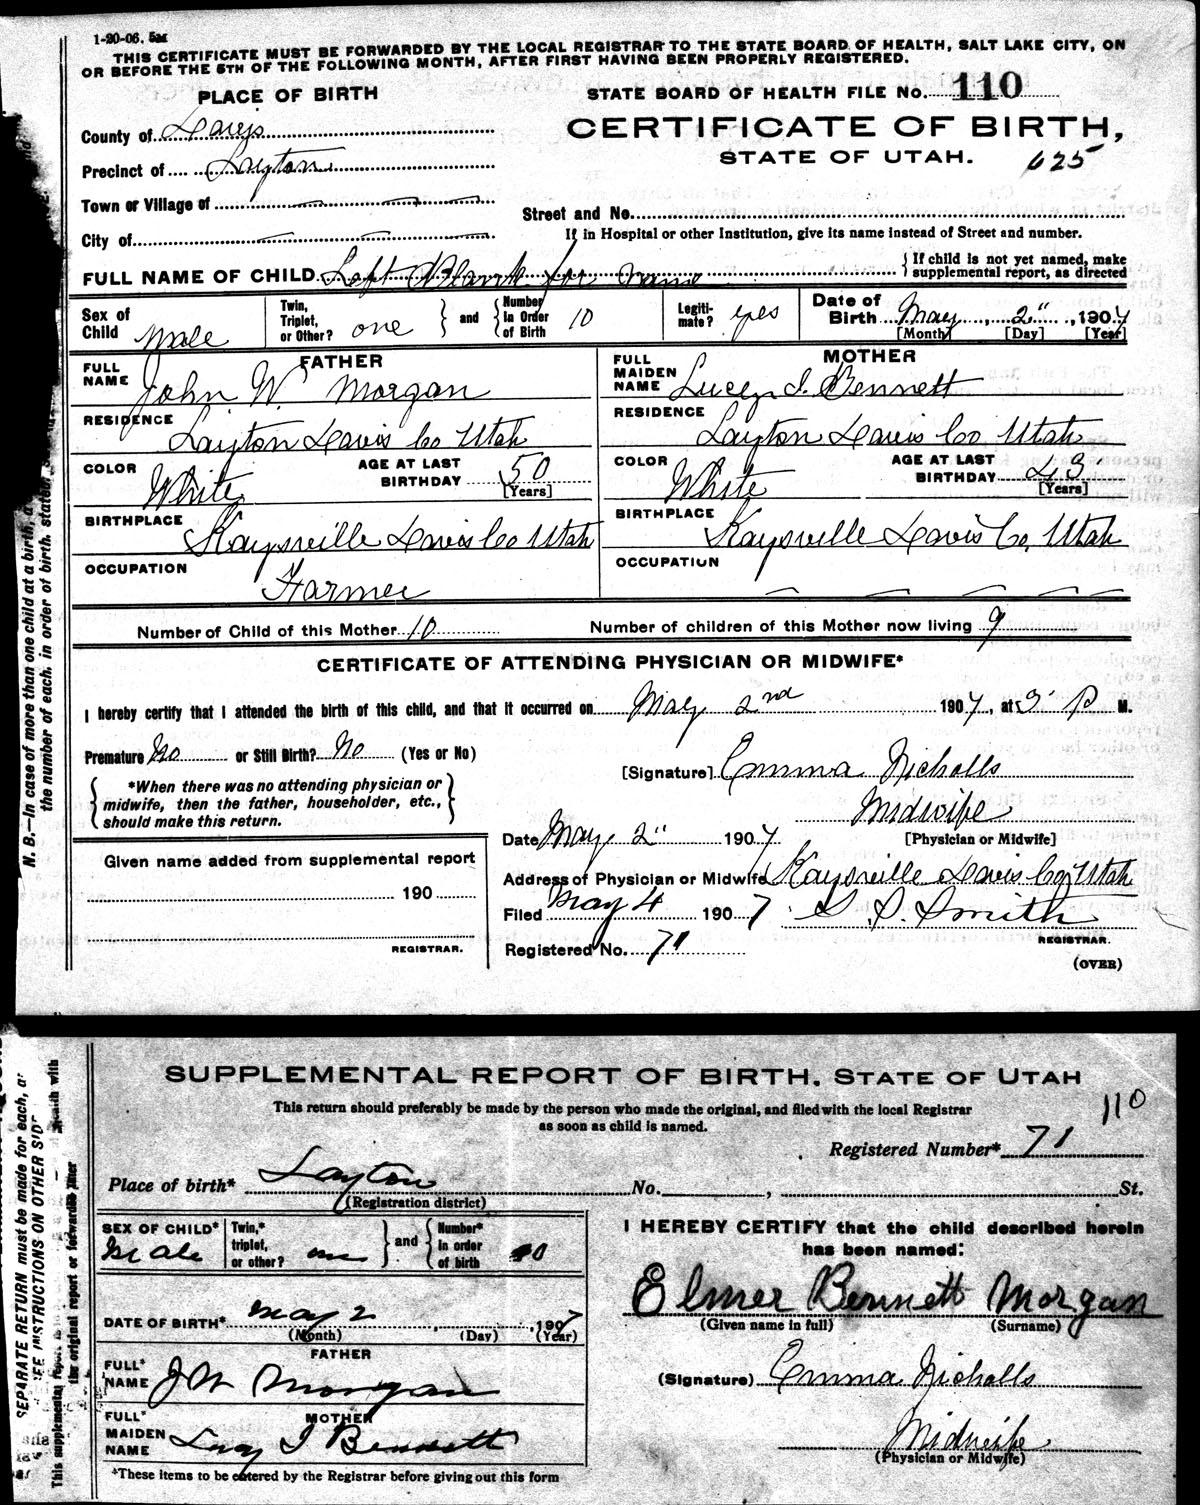 1-20-06, 5M
THIS CERTIFICATE MUST BE FORWARDED BY THE LOCAL REGISTRAR TO THE STATE BOARD OF HEALTH, SALT LAKE CITY, ON
OR BEFORE THE 5TH OF THE FOLLOWING MONTH, AFTER FIRST HAVING BEEN PROPERLY REGISTERED.
PLACE OF BIRTH
STATE BOARD OF HEALTH FILE No. 110
County of Davis
CERTIFICATE OF BIRTH,
Precinct of Layton
STATE OF UTAH. 625
Town or Village of
Street and No.
City of
If in Hospital or other Institution, give its name instead of Street and number.
FULL NAME OF CHILD Left Blank for name
If child is not yet named, make
supplemental report, as directed
Sex of Child Male
Twin, Triplet, or Other? one
and
Number in Order of Birth 10
Legiti-mate? yes
Date of Birth May 2" 1907
[Month] [Day] [Year]
FATHER
FULL NAME John W. Morgan
MOTHER
FULL MAIDEN NAME Lucy I. Bennett
RESIDENCE Layton Davis Co Utah
RESIDENCE Layton Davis Co Utah
COLOR White
AGE AT LAST BIRTHDAY 50 [Years]
COLOR White
AGE AT LAST BIRTHDAY 43 [Years]
BIRTHPLACE Kaysville Davis Co Utah
BIRTHPLACE Kaysville Davis Co, Utah
OCCUPATION Farmer
OCCUPATION
Number of Child of this Mother 10
Number of children of this Mother now living 9
CERTIFICATE OF ATTENDING PHYSICIAN OR MIDWIFE*
I hereby certify that I attended the birth of this child, and that it occurred on May 2nd 1907, at 3 P M.
Premature No or Still Birth? No (Yes or No)
[Signature] Emma Nicholls
*When there was no attending physician or
midwife, then the father, householder, etc.,
should make this return.
Midwife
[Physician or Midwife]
Date May 2" 1907
Given name added from supplemental report
190
REGISTRAR.
Address of Physician or Midwife Kaysville Davis Co, Utah
Filed May 4 1907 G. S. Smith
REGISTRAR.
Registered No. 71
(OVER)
N. B.—In case of more than one child at a birth, a
the number of each, in order of birth, stated,
SUPPLEMENTAL REPORT OF BIRTH. STATE OF UTAH
This return should preferably be made by the person who made the original, and filed with the local Registrar
as soon as child is named.
110
Registered Number* 71
Place of birth* Layton No. , St.
(Registration district)
SEX OF CHILD* Male
Twin,* triplet, or other? one
and
Number* in order of birth 10
I HEREBY CERTIFY that the child described herein
has been named:
Elmer Bennett Morgan
(Given name in full) (Surname)
DATE OF BIRTH* May 2, 1907
(Month) (Day) (Year)
FATHER
FULL* NAME J W Morgan
(Signature) Emma Nicholls
MOTHER
FULL* MAIDEN NAME Lucy I Bennett
Midwife
(Physician or Midwife)
*These items to be entered by the Registrar before giving out this form
SEPARATE RETURN must be made for each, a
SEE INSTRUCTIONS ON OTHER SID
This supplemental report
the original report or forwarded